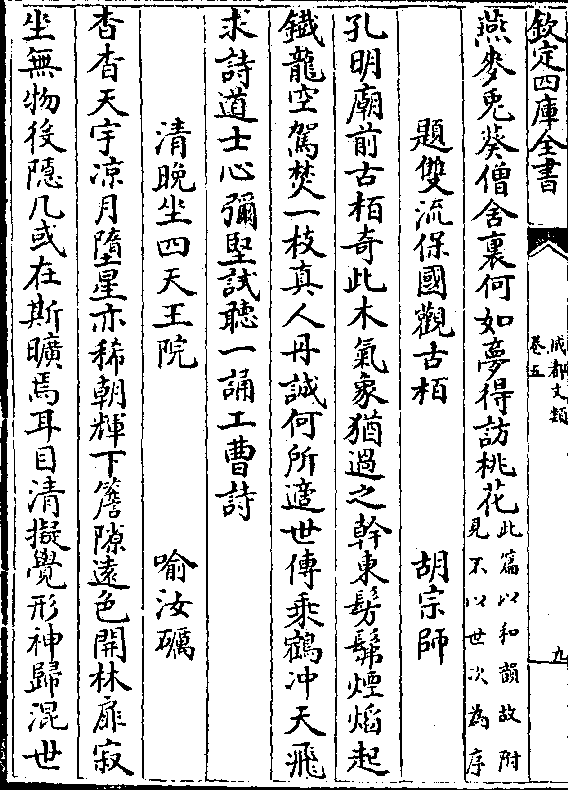 欽定四庫全書
成都文類
卷五
九
燕麥兎葵僧舍裏何如夢得訪桃花此篇以和韻故附見不以世次為序
題雙流保國觀古栢
胡宗師
孔明廟前古栢奇此木氣象猶過之幹東髣髴煙焰起
鐵龍空駕焚一枝真人丹誠何所適世傳乘鶴冲天飛
求詩道士心彌堅試聽一誦工曹詩
清晚坐四天王院
喻汝礪
杳杳天宇凉月墮星亦稀朝輝下簷隙遠色開林扉寂
坐無物役隱几或在斯曠焉耳目清擬覺形神歸混世